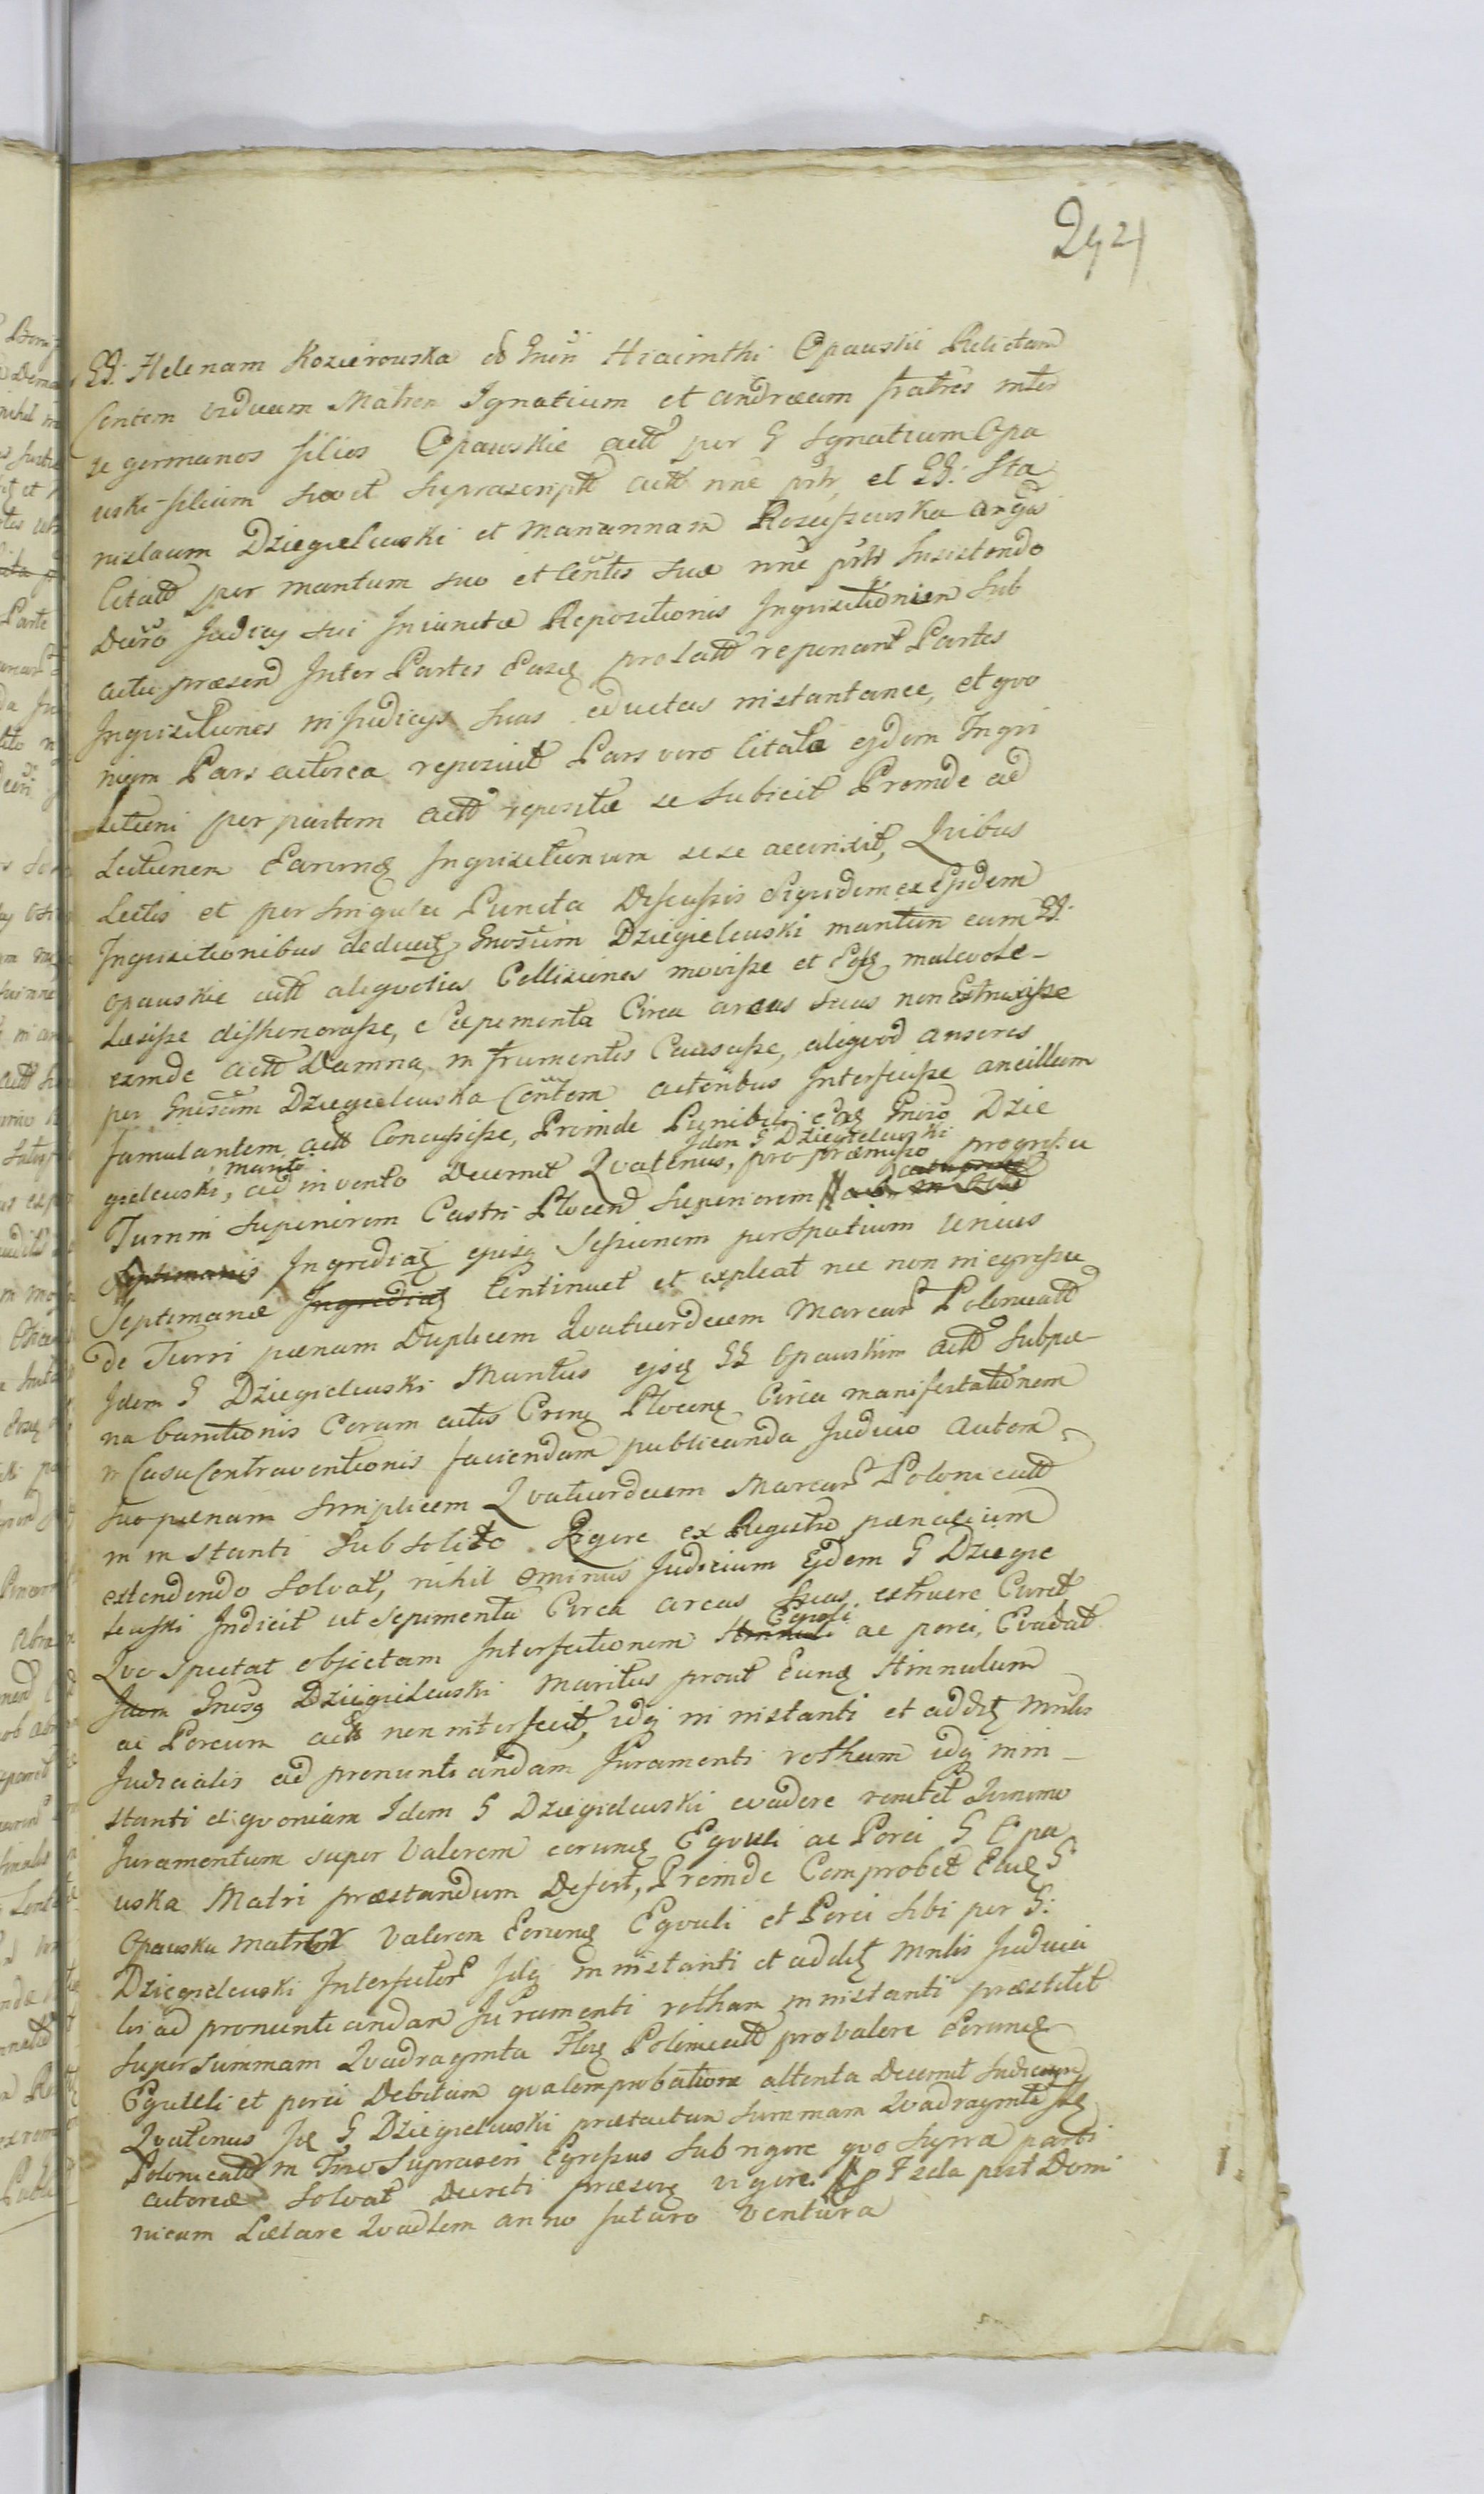 292
GG. Helenam Kozierowska ol Gnsi Hiacinthi Opawskie Relictam
Contem viduam Matrem Ignatium et Andream fratres inter
se germanos filios Opawskie actt per G Ignatium Opa
wski filium suo et suprascriptt actt nne prtr, et GG: Sta
nislaum Dziegielewski et Mariannam Roszuszewska
Citatt per maritum suo et Contis suæ nne prtr Insistendo
Decro Judicy sui Iniunctæ Repositionis Inquisitionum Sub
actu præsend Inter Partes Easq prolatt reponant Partes
Inquisitiones in Judicys suas eductas instantanee, et quo
niam Pars actorea reposuit Pars vero Citata ejdem Inqui
sitioni per partem actt repositæ se subiecit Proinde ad
Lectionem Earumq Inquisitionum sese accinxit, Quibus
Lectis et per singula Puncta Discussis Siquidem ex Ejsdem
Inquisitionibus deducitq Gnosum Dziegielewski maritum cum GG.
Opawskie actt aliquoties Collisiones movisse et Eosq malevole
Læsisse dishonorasse, Sepimenta Circa areas suas non Extruxisse
exinde actt Damna, in frumentis Causasse, aliquod anseres
per Gnosam Dziegielewska Contem actoribus Interfecisse ancillam
famulantem actt Concussisse, Proinde Punibili Gnoso Dzie
gielewski, marito ad invento Decernit Quatenus, Idem G Dziegielewski pro præmisso progressu
Turrim superiorem Castri Plocen Superiorem
Septimanis Ingrediatq ejusq Sessionem per spatium unius
Septimanæ Ingrediatq Continuet et expleat nec non in egressu
de Turri pænam Duplicem Quatuordecem Marcar Polonicatt
Idem G Dziegielewski Maritus ejsq GG Opawskim actt sub pæ-
na banitionis Coram actis Crenq Plocenq Circa manifestationem
in Casu Contraventionis faciendam publicanda Judicio autem
suo pænam simplicem Quatuordecem Marcar Polonicatt
in instanti sub solito Rigore ex Registro pænalium
extendendo solvat, nihil ominus Judicium Ejdem G Dziegie
lewski Indicit ut Sepimenta Circa areas suas extruere Curet
Quo Spectat objectam Interfectionem Hinnuli Equuli ac porci, Evadat
Idem Gnosq Dziegielewski Maritus prout Eunq Hinnulum
ac Porcum actt non interfecit, idq in instanti et additq Mnlis
Judicialis ad pronuntiandam Juramenti rotham idq in in-
stanti et quoniam Idem G Dziegielewski evadere renitet Immo
Juramentum super Valorem eorumq Equuli ac Porci G Opa
wska Matri præstandum Defert, Proinde Comprobet Eaq G
Opawska Mater Valorem Eorumq Equuli et Porci sibi per G:
Dziegielewski Interfector Idq in instanti et additq Mnlis Judicia
lis ad pronuntiandam Juramenti rotham in instanti præstitit
super summam Quadraginta Flnq Polonicatt pro valore Eorumq
Equuleli et porci Debitam qualem probatione attenta Decernit Judicium
Quatenus Idq G Dziegielewski prætactam summam Quadraginta Flq
Polonicatt in Tmo Suprascri Egressus sub rigore quo supra parti
actoreæ solvat Decreti præsenq vigore. F 2da post Domi
nicam Lætare Quadlem anno futuro Ventura